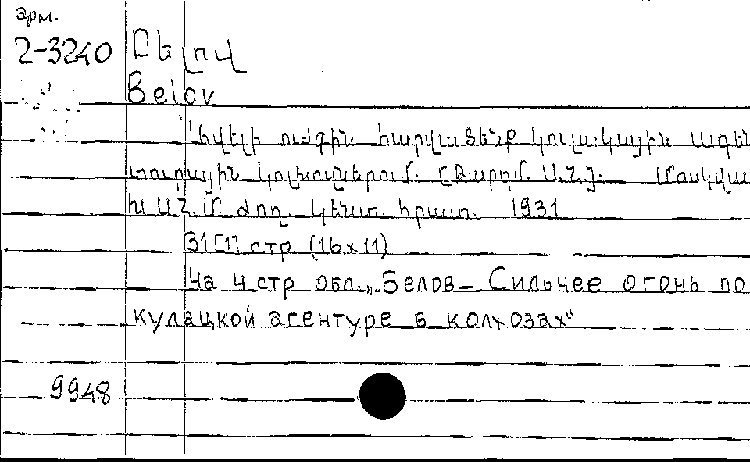 арм.
2-3240 Բելով
Belov
Ավելի ուժգին հարվածենք կուլակային ագեն
տուրային կոլխոզներում. [Թարգմ. Ա.Զ.]. Մոսկվա
ԽՍՀՄ ժող. կենտ հրատ. 1931
31[1] стр (16x11)
На 4 стр обл. „Белов– Сильнее огонь по
кулацкой агентуре в колхозах"
9948